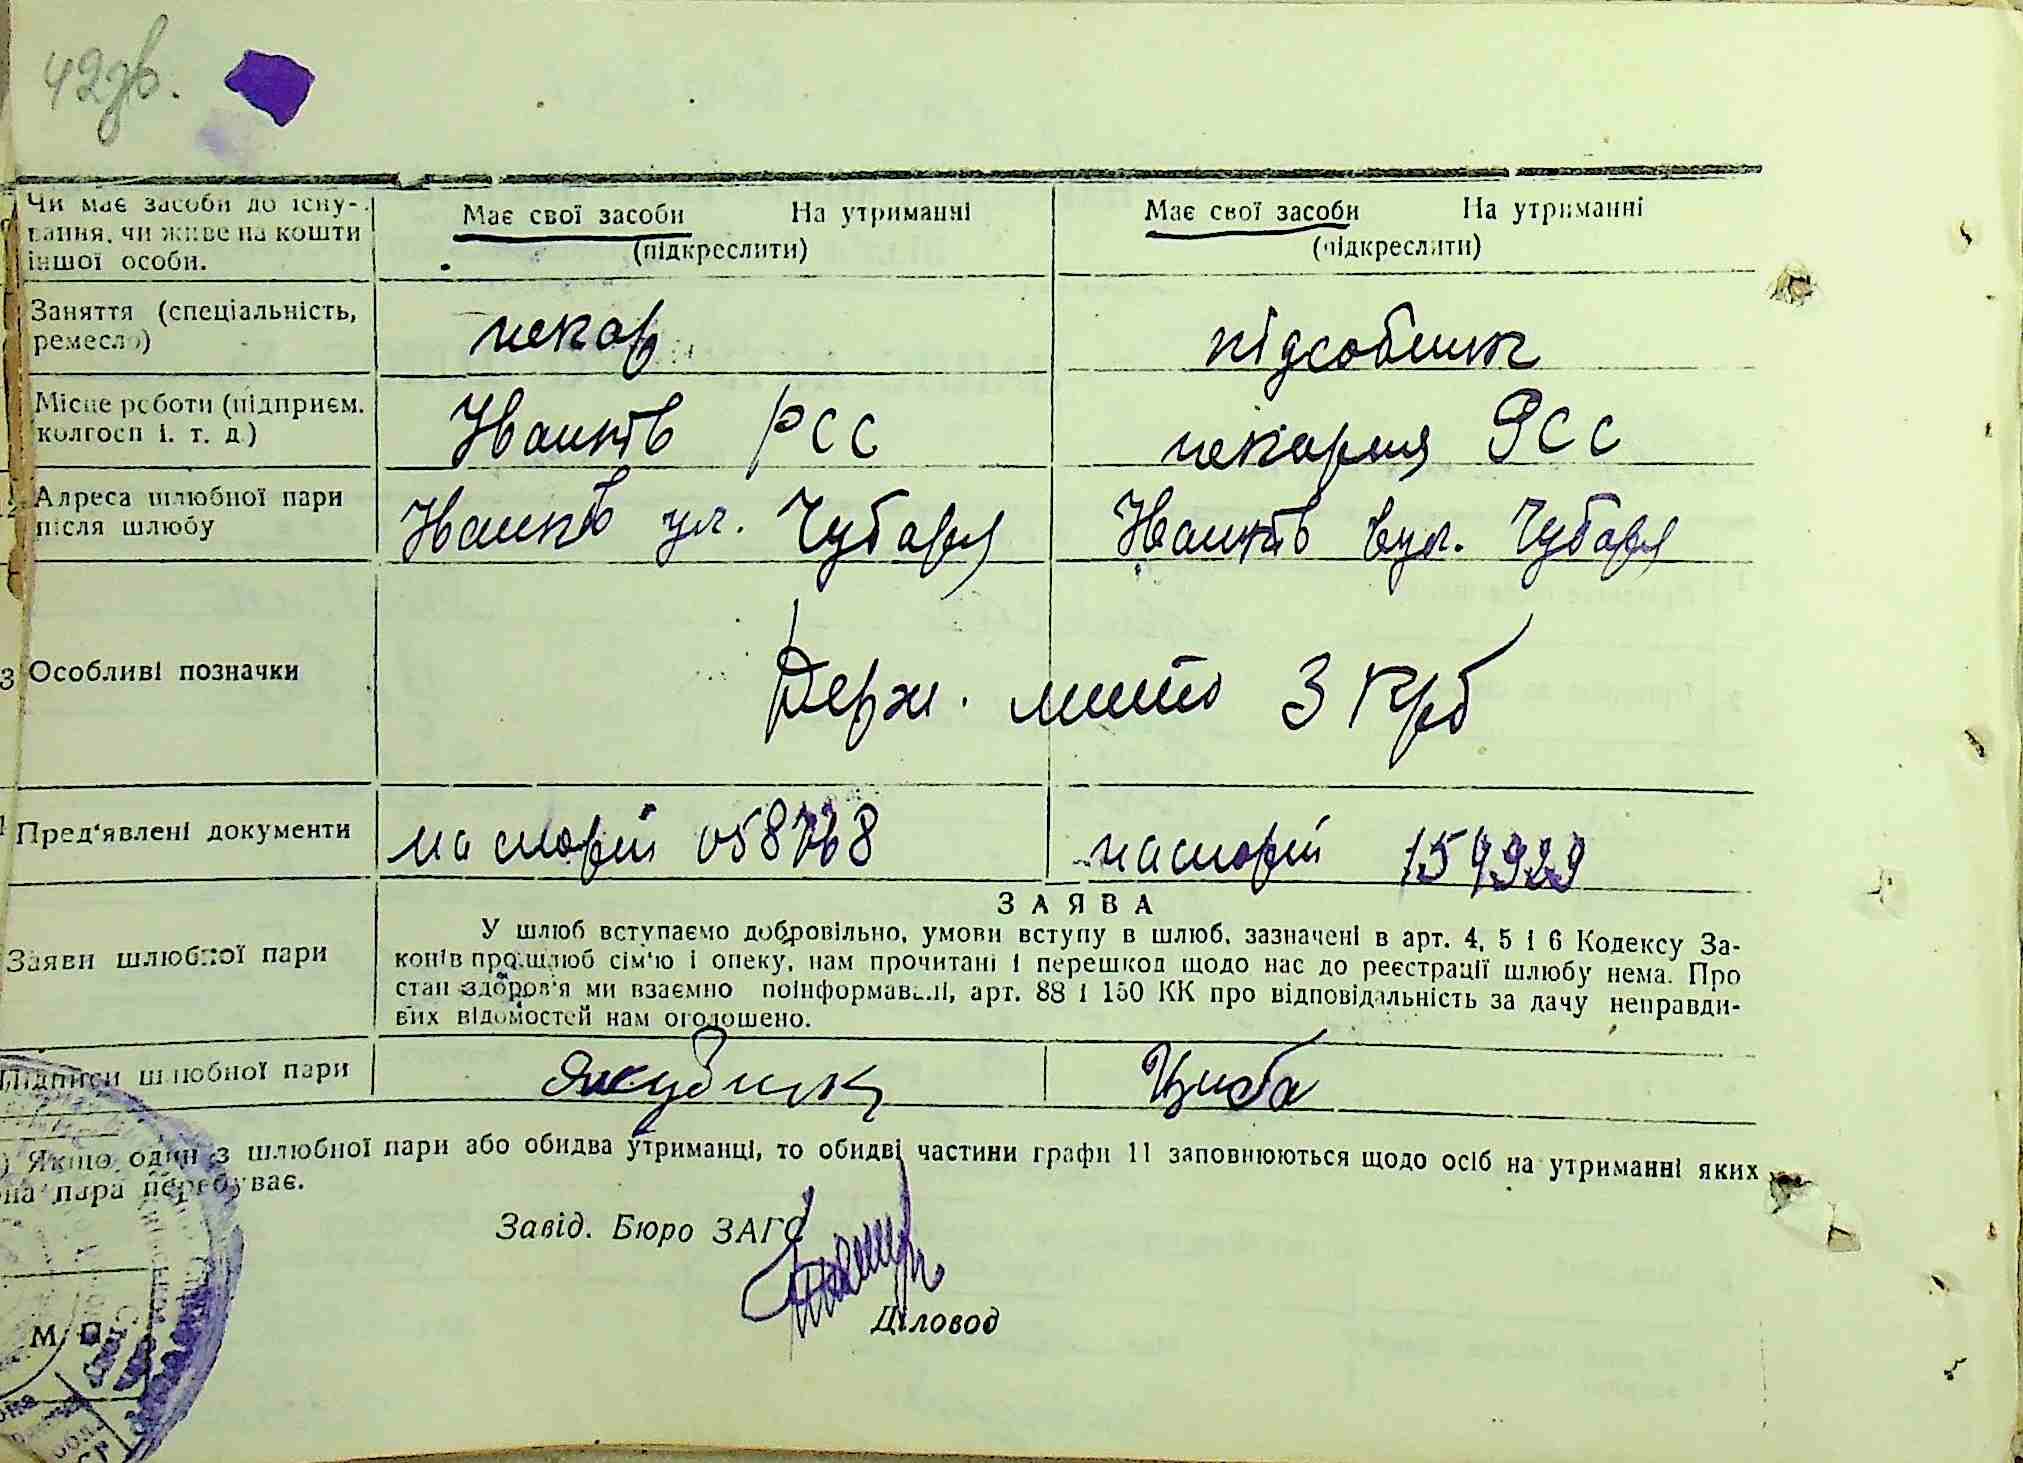 42зв.
Чи має засоби до існу-
вання, чи живе на кошти
іншої особи.
Має свої засоби На утриманні
(підкреслити)
Має свої засоби На утриманні
(підкреслити)
Заняття (спеціальність,
ремесло)
пекар
підсобник
Місце роботи (підприєм.
колгосп і. т. д.)
Іванків РСС
пекарня РСС
Адреса шлюбної пари
після шлюбу
Іванків ул. Чубаря
Іванків вул. Чубаря
3 Особливі позначки
Держ. мито 3 крб
Пред'явлені документи
паспорт
паспорт 154929
Заяви шлюбної пари
ЗАЯВА
У шлюб вступаємо добровільно, умови вступу в шлюб, зазначені в арт. 4, 5 і 6 Кодексу За-
конів про шлюб сім'ю і опеку, нам прочитані і перешкод щодо нас до реєстрації шлюбу нема. Про
стан здоров'я ми взаємно поінформавані, арт. 88 і 150 КК про відповідальність за дачу неправди-
вих відомостей нам оголошено.
Підписи шлюбної пари
Якубчик
Циба
) Якщо один з шлюбної пари або обидва утриманці, то обидві частини графи 11 заповнюються щодо осіб на утриманні яких
пара перебуває.
Завід. Бюро ЗАГС
Діловод
М. П.